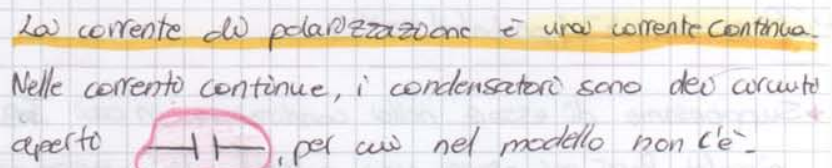 La corrente di polarizzazione è una corrente continua.
Nelle correnti continue, i condensatori sono dei circuiti
aperti , per cui nel modello non c'è.